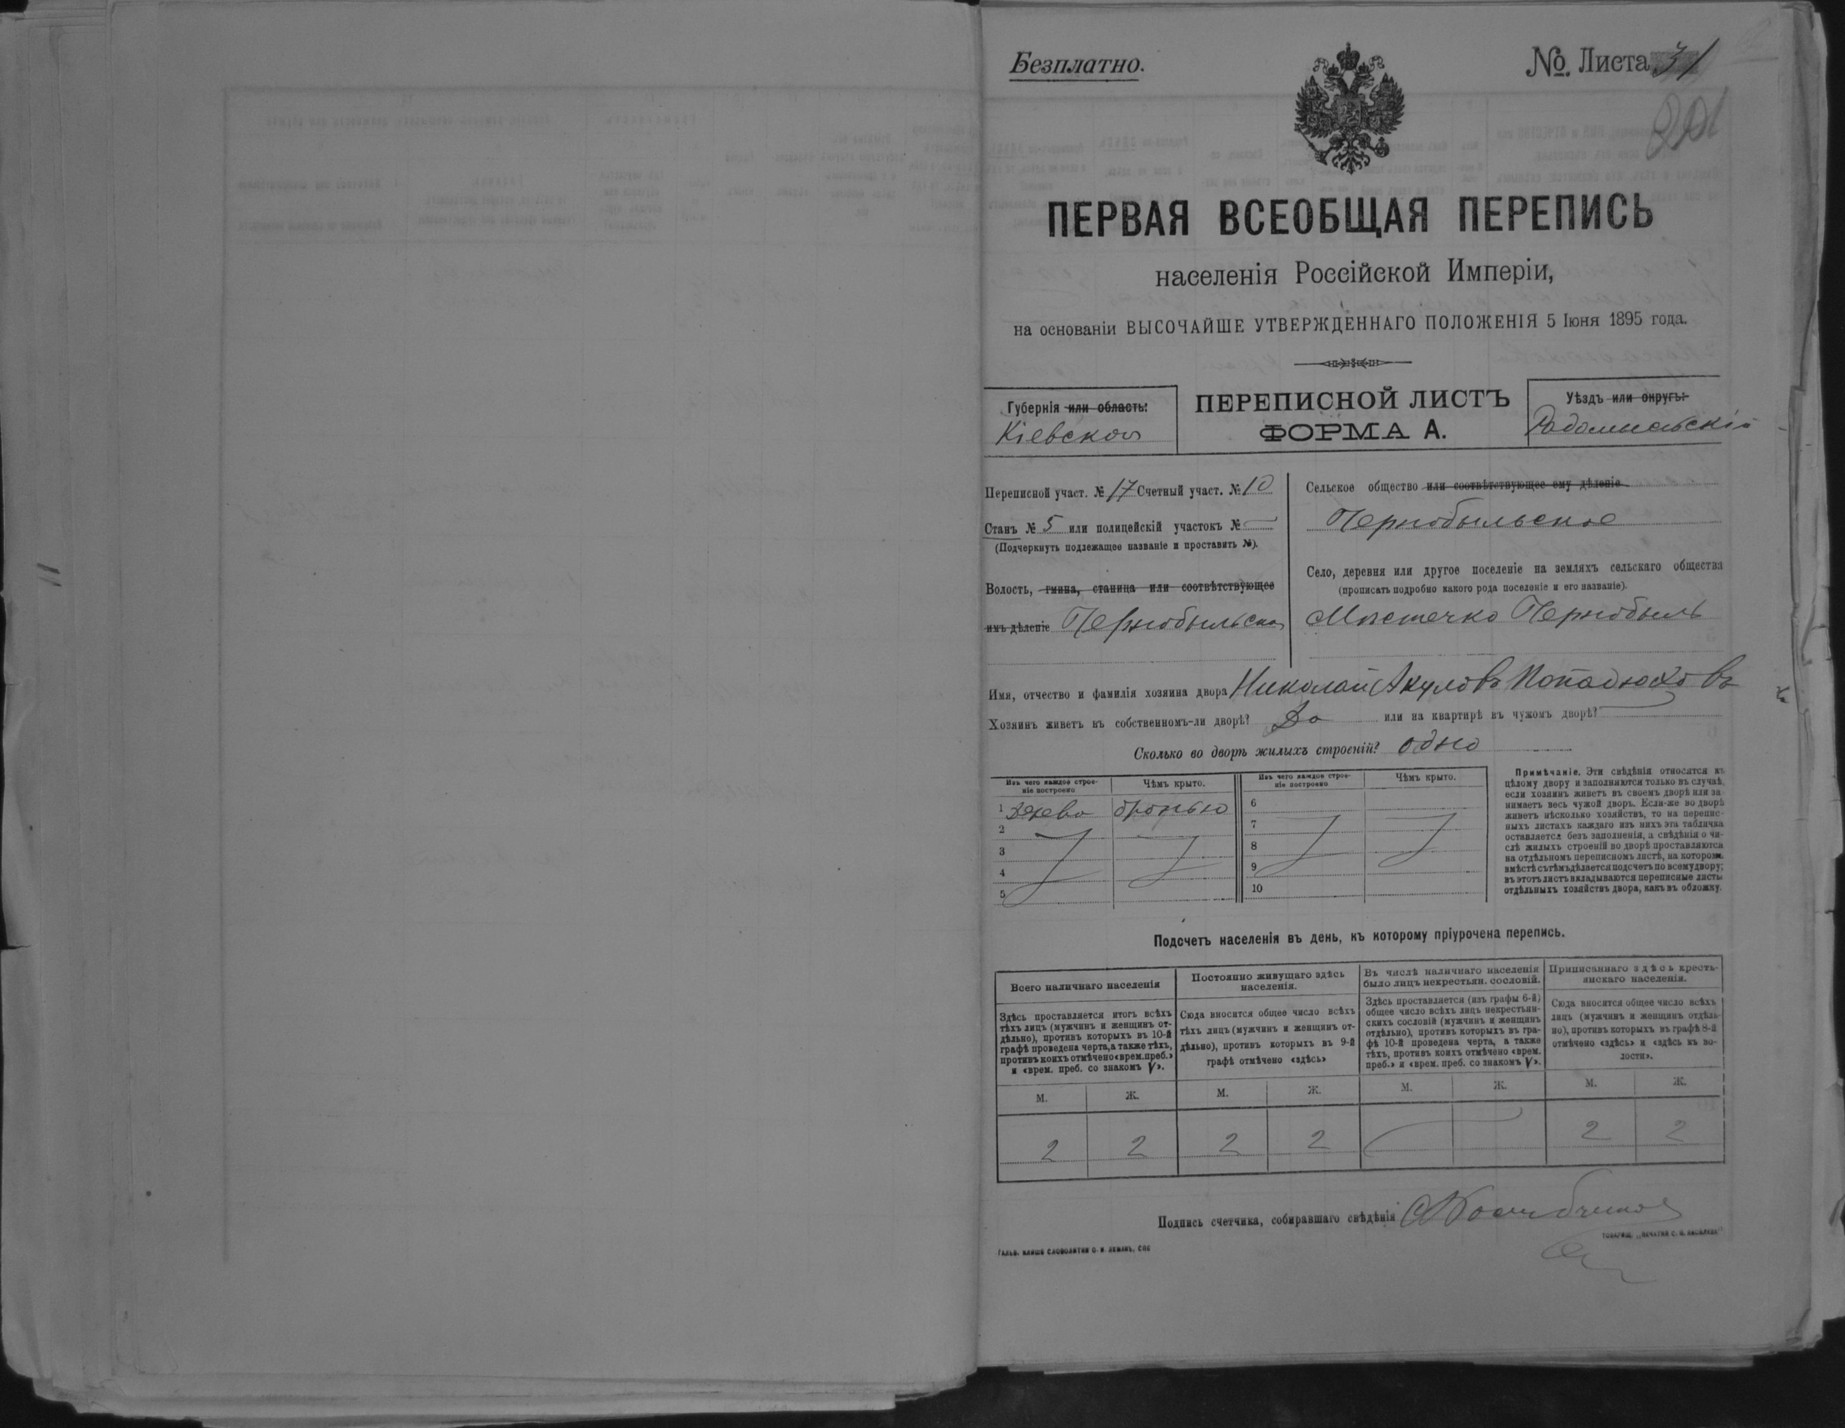 Безплатно.
№ Листа 31
201
ПЕРВАЯ ВСЕОБЩАЯ ПЕРЕПИСЬ
населенія Россійской Имперіи,
на основаніи ВЫСОЧАЙШЕ УТВЕРЖДЕННАГО ПОЛОЖЕНІЯ 5 Іюня 1895 года.
Губернія или область:
Кіевская
ПЕРЕПИСНОЙ ЛИСТЪ
ФОРМА А.
Уѣздъ или округъ:
Радомысльскій
Переписной участ. № 17 Счетный участ. № 10
Станъ № 5 или полицейскій участокъ №
(Подчеркнуть подлежащее названіе и проставить №).
Волость, гмина, станица или соотвѣтствующее
имъ дѣленіе Чернобыльская
Сельское общество или соотвѣтствующее ему дѣленіе
Чернобыльское
Село, деревня или другое поселеніе на земляхъ сельскаго общества
(прописать подробно какого рода поселеніе и его названіе).
Мѣстечко Чернобыль
Имя, отчество и фамилія хозяина двора Николай Акуловъ
Хозяинъ живетъ въ собственномъ-ли дворѣ? Да или на квартирѣ въ чужомъ дворѣ?
Сколько во дворѣ жилыхъ строеній? одно
Изъ чего каждое строеніе построено
Чѣмъ крыто.
Изъ чего каждое строеніе построено
Чѣмъ крыто.
1 Дерево
2
3
4
5
6
7
8
9
10
Примѣчаніе. Эти свѣдѣнія относятся къ
цѣлому двору и заполняются только въ случаѣ,
если хозяинъ живетъ въ своемъ дворѣ или за
нимаетъ весь чужой дворъ. Если-же во дворѣ
живетъ нѣсколько хозяйствъ, то на перепис-
ныхъ листахъ каждаго изъ нихъ эта табличка
оставляется безъ заполненія, а свѣдѣнія о чи-
слѣ жилыхъ строеній во дворѣ проставляются
на отдѣльномъ переписномъ листѣ, на которомъ
вмѣстѣ съ тѣмъ дѣлается подсчетъ по всему двору;
въ этотъ листъ вкладываются переписные листы
отдѣльныхъ хозяйствъ двора, какъ въ обложку.
Подсчетъ населенія въ день, къ которому пріурочена перепись.
Всего наличнаго населенія
Здѣсь проставляется итогъ всѣхъ
тѣхъ лицъ (мужчинъ и женщинъ от-
дѣльно), противъ которыхъ въ 10-й
графѣ проведена черта, а также тѣхъ,
противъ коихъ отмѣчено «врем. преб.»
и «врем. преб. со знакомъ V».
Постоянно живущаго здѣсь
населенія.
Сюда вносится общее число всѣхъ
тѣхъ лицъ (мужчинъ и женщинъ от-
дѣльно), противъ которыхъ въ 9-й
графѣ отмѣчено «здѣсь»
Въ числѣ наличнаго населенія
было лицъ некрестьян. сословій.
Здѣсь проставляется (изъ графы 6-й)
общее число всѣхъ лицъ некрестьян-
скихъ сословій (мужчинъ и женщинъ
отдѣльно), противъ которыхъ въ гра-
фѣ 10-й проведена черта, а также
тѣхъ, противъ коихъ отмѣчено «врем.
преб.» и «врем. преб. со знакомъ V».
Приписаннаго здѣсь кресть-
янскаго населенія.
Сюда вносится общее число всѣхъ
лицъ (мужчинъ и женщинъ отдѣль-
но), противъ которыхъ въ графѣ 8-й
отмѣчено «здѣсь» и «здѣсь въ во-
лости».
М. Ж. М. Ж. М. Ж. М. Ж.
2 2 2 2 2 2
Подпись счетчика, собиравшаго свѣдѣнія